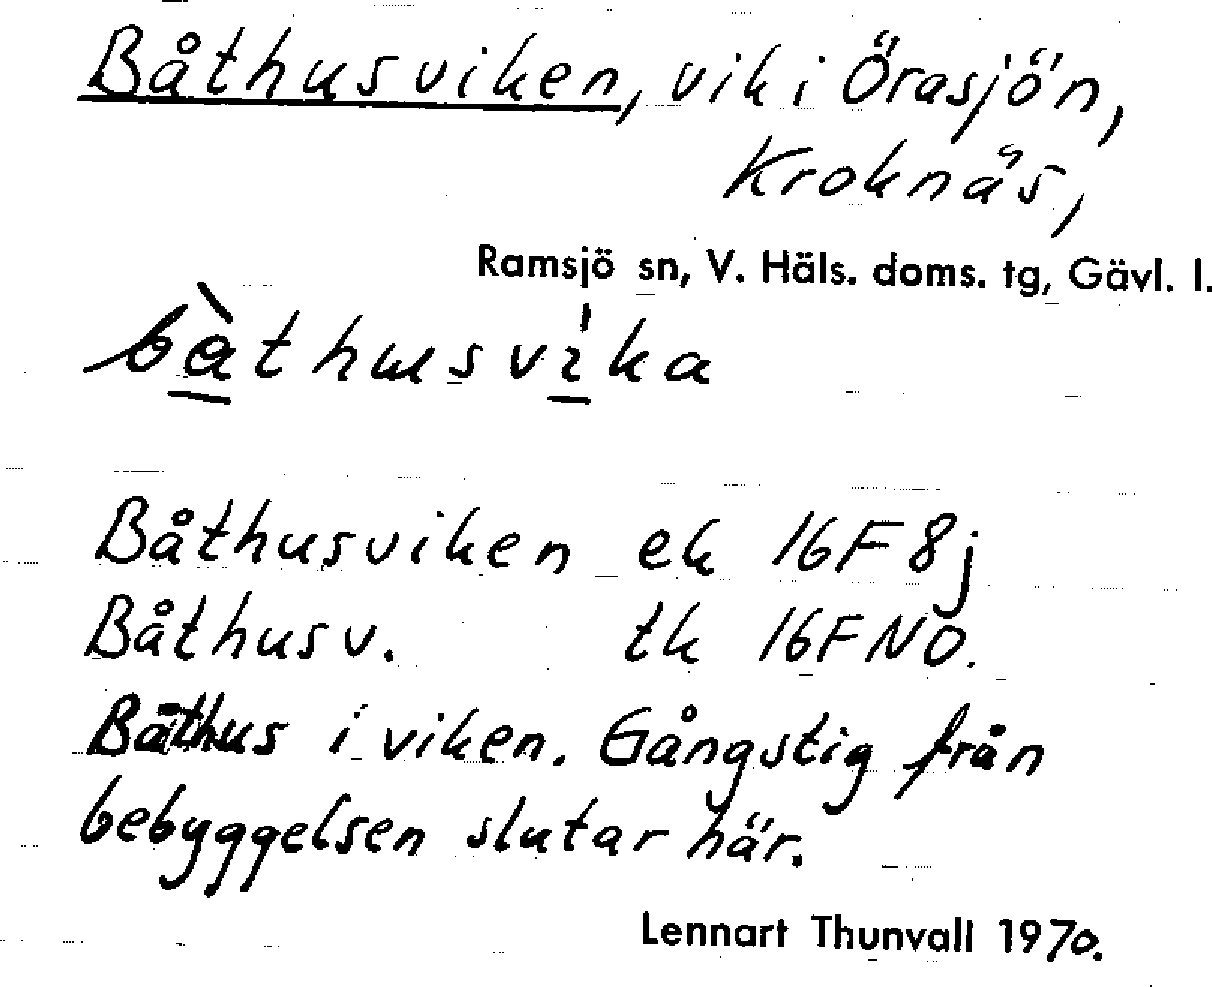 Båthusviken, vik i Örasjön,
Kroknäs,
Ramsjö sn, V. Häls. doms. tg, Gävl. l.
bàthusvika
Båthusviken ek 16F 8j
Båthusv. tk 16F NO.
Båthus i viken. Gångstig från
bebyggelsen slutar här.
Lennart Thunvall 1970.